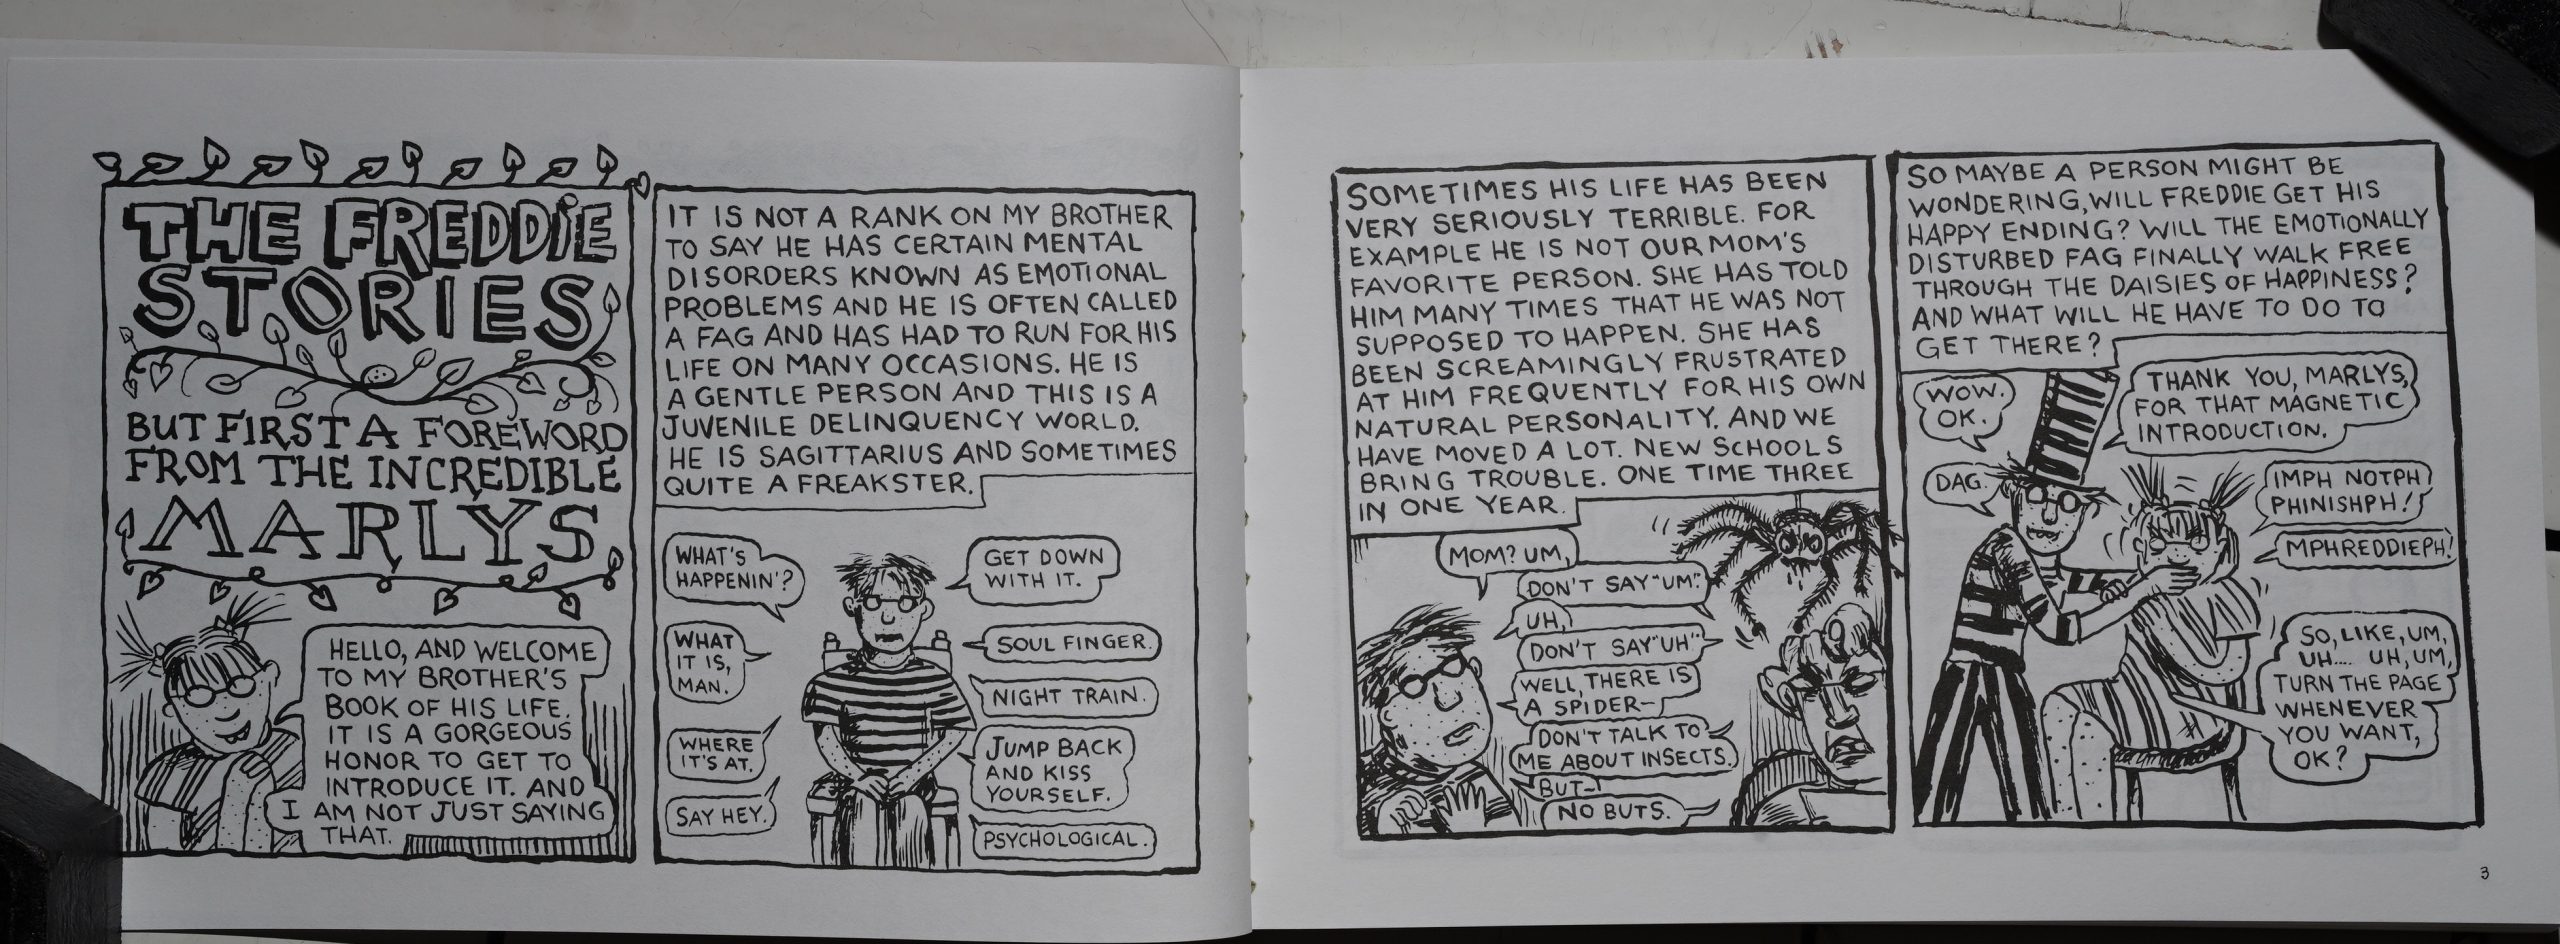 THE FREDDIE
STORIES
BUT FIRST A FOREWORD
FROM THE INCREDIBLE
MARLYS
HELLO, AND WELCOME
TO MY BROTHER'S
BOOK OF HIS LIFE.
IT IS A GORGEOUS
HONOR TO GET TO
INTRODUCE IT. AND
I AM NOT JUST SAYING
THAT.
IT IS NOT A RANK ON MY BROTHER
TO SAY HE HAS CERTAIN MENTAL
DISORDERS KNOWN AS EMOTIONAL
PROBLEMS AND HE IS OFTEN CALLED
A FAG AND HAS HAD TO RUN FOR HIS
LIFE ON MANY OCCASIONS. HE IS
A GENTLE PERSON AND THIS IS A
JUVENILE DELINQUENCY WORLD.
HE IS SAGITTARIUS AND SOMETIMES
QUITE A FREAKSTER.
WHAT'S
HAPPENIN'?
WHAT
IT IS,
MAN.
WHERE
IT'S AT.
SAY HEY.
GET DOWN
WITH IT.
SOUL FINGER.
NIGHT TRAIN.
JUMP BACK
AND KISS
YOURSELF.
PSYCHOLOGICAL.
SOMETIMES HIS LIFE HAS BEEN
VERY SERIOUSLY TERRIBLE. FOR
EXAMPLE HE IS NOT OUR MOM'S
FAVORITE PERSON. SHE HAS TOLD
HIM MANY TIMES THAT HE WAS NOT
SUPPOSED TO HAPPEN. SHE HAS
BEEN SCREAMINGLY FRUSTRATED
AT HIM FREQUENTLY FOR HIS OWN
NATURAL PERSONALITY. AND WE
HAVE MOVED A LOT. NEW SCHOOLS
BRING TROUBLE. ONE TIME THREE
IN ONE YEAR.
MOM? UM,
DON'T SAY "UM".
UH,
DON'T SAY "UH".
WELL, THERE IS
A SPIDER-
DON'T TALK TO
ME ABOUT INSECTS.
BUT-
NO BUTS.
SO MAYBE A PERSON MIGHT BE
WONDERING, WILL FREDDIE GET HIS
HAPPY ENDING? WILL THE EMOTIONALLY
DISTURBED FAG FINALLY WALK FREE
THROUGH THE DAISIES OF HAPPINESS?
AND WHAT WILL HE HAVE TO DO TO
GET THERE?
WOW.
OK.
DAG.
THANK YOU, MARLYS,
FOR THAT MAGNETIC
INTRODUCTION.
IMPH NOTPH
PHINISHPH!
MPHREDDIEPH!
SO, LIKE, UM,
UH.... UH, UM,
TURN THE PAGE
WHENEVER
YOU WANT,
OK?
3